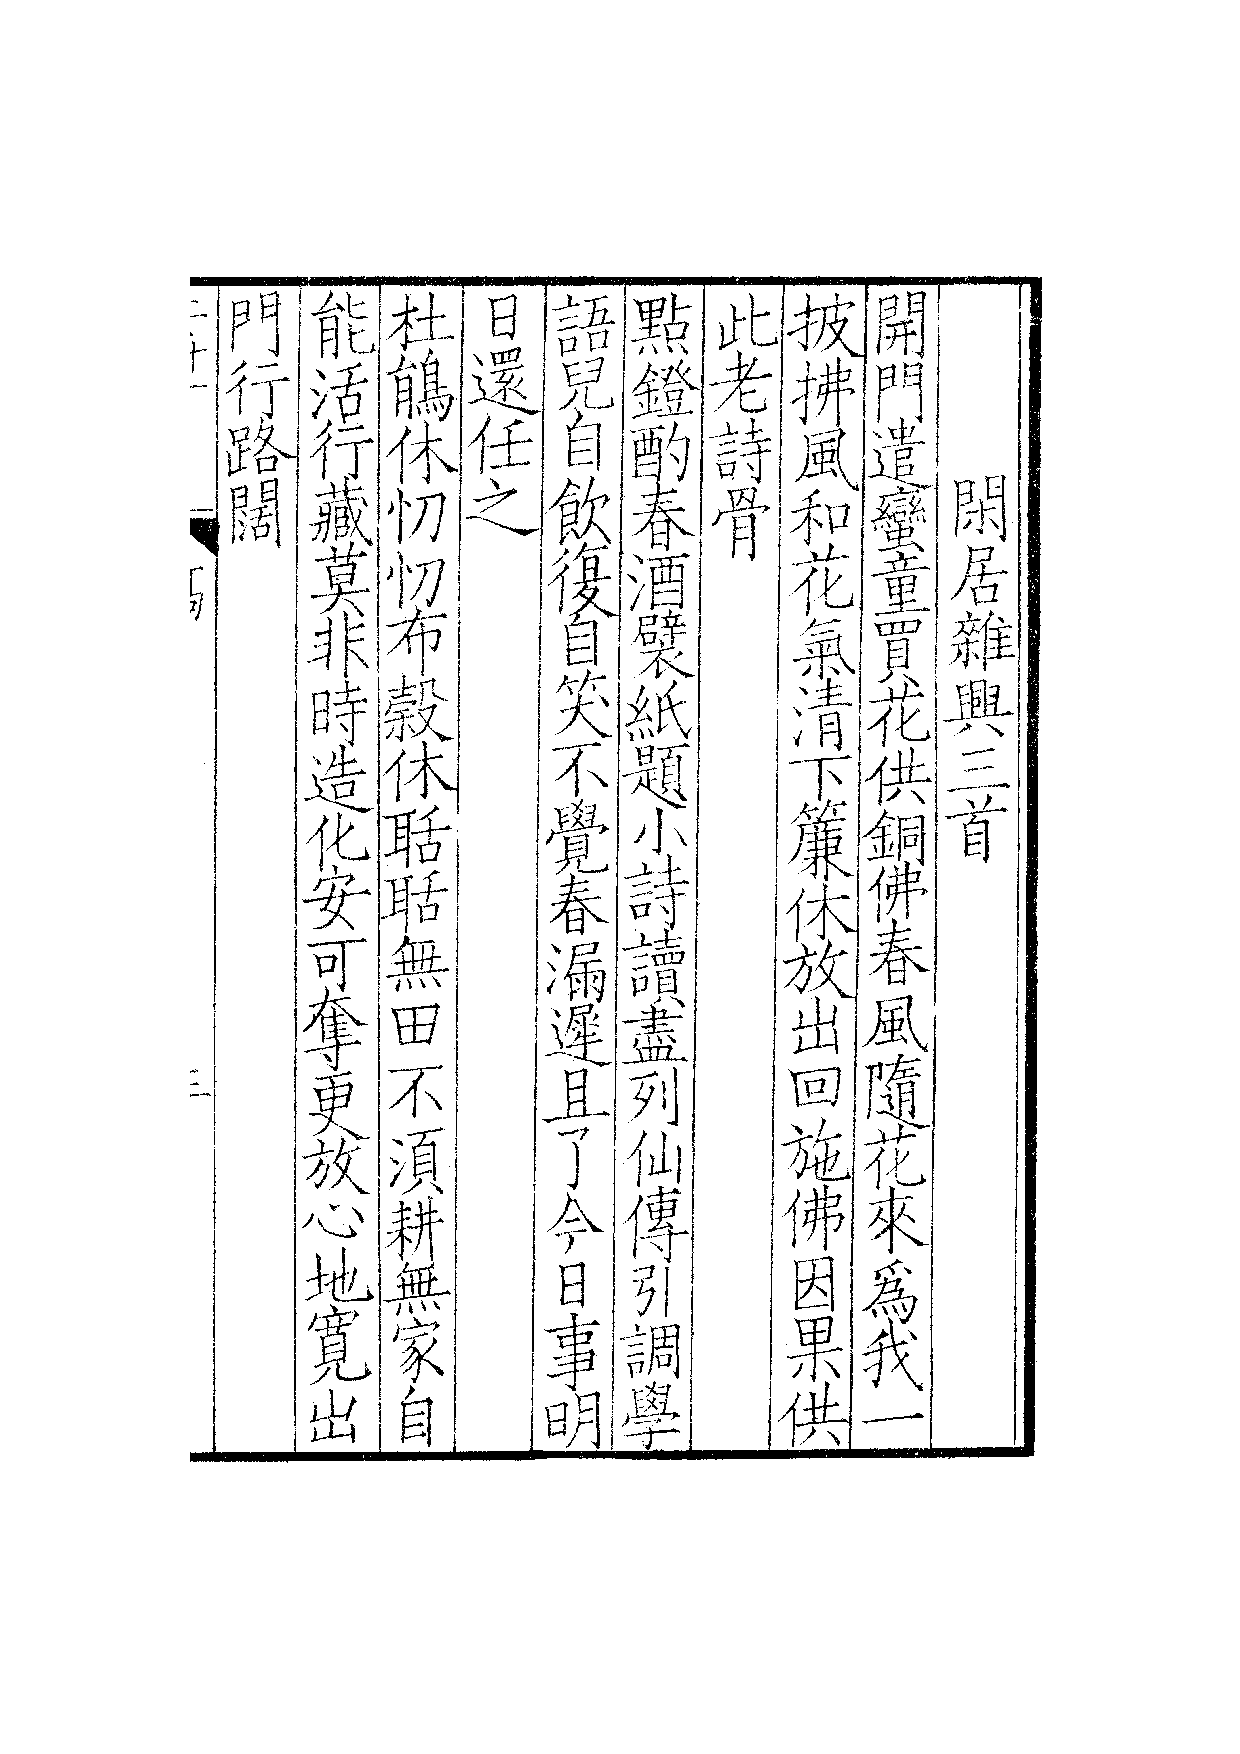 閑居雜興三首
開門遣蠻童買花供銅佛春風隨花來爲我一
披拂風和花氣清下簾休放出回施佛因果供
此老詩骨
點鐙酌春酒襞紙題小詩讀盡列仙傳引調學
語兒自飲復自笑不覺春漏遲且了今日事明
日還任之
杜鵑休忉忉布榖休聒聒無田不須耕無家自
能活行藏莫非時造化安可奪更放心地寬出
門行路闊